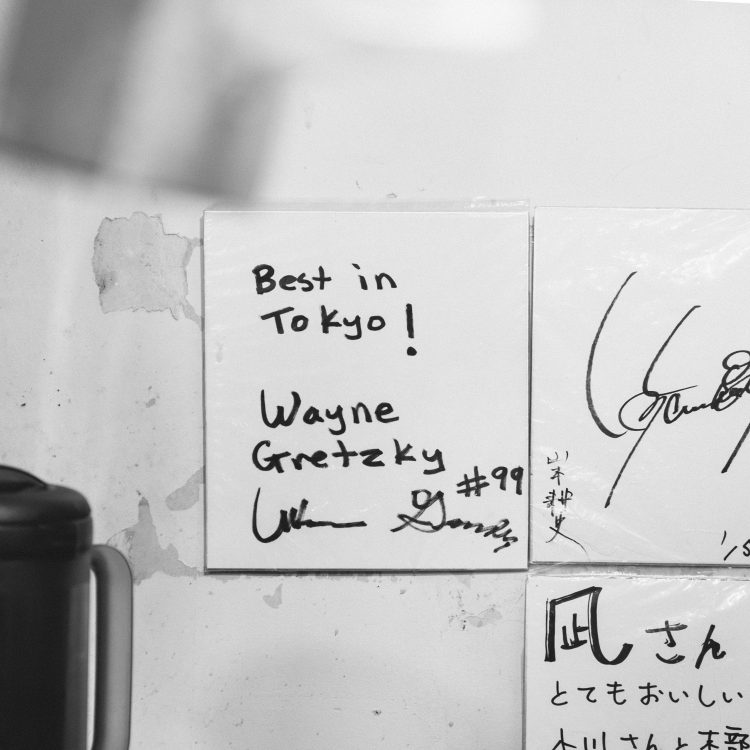 Best in
Tokyo!
Wayne
Gretzky
#99
山本耕史
凪さん
とてもおいしい
小川さんと本部